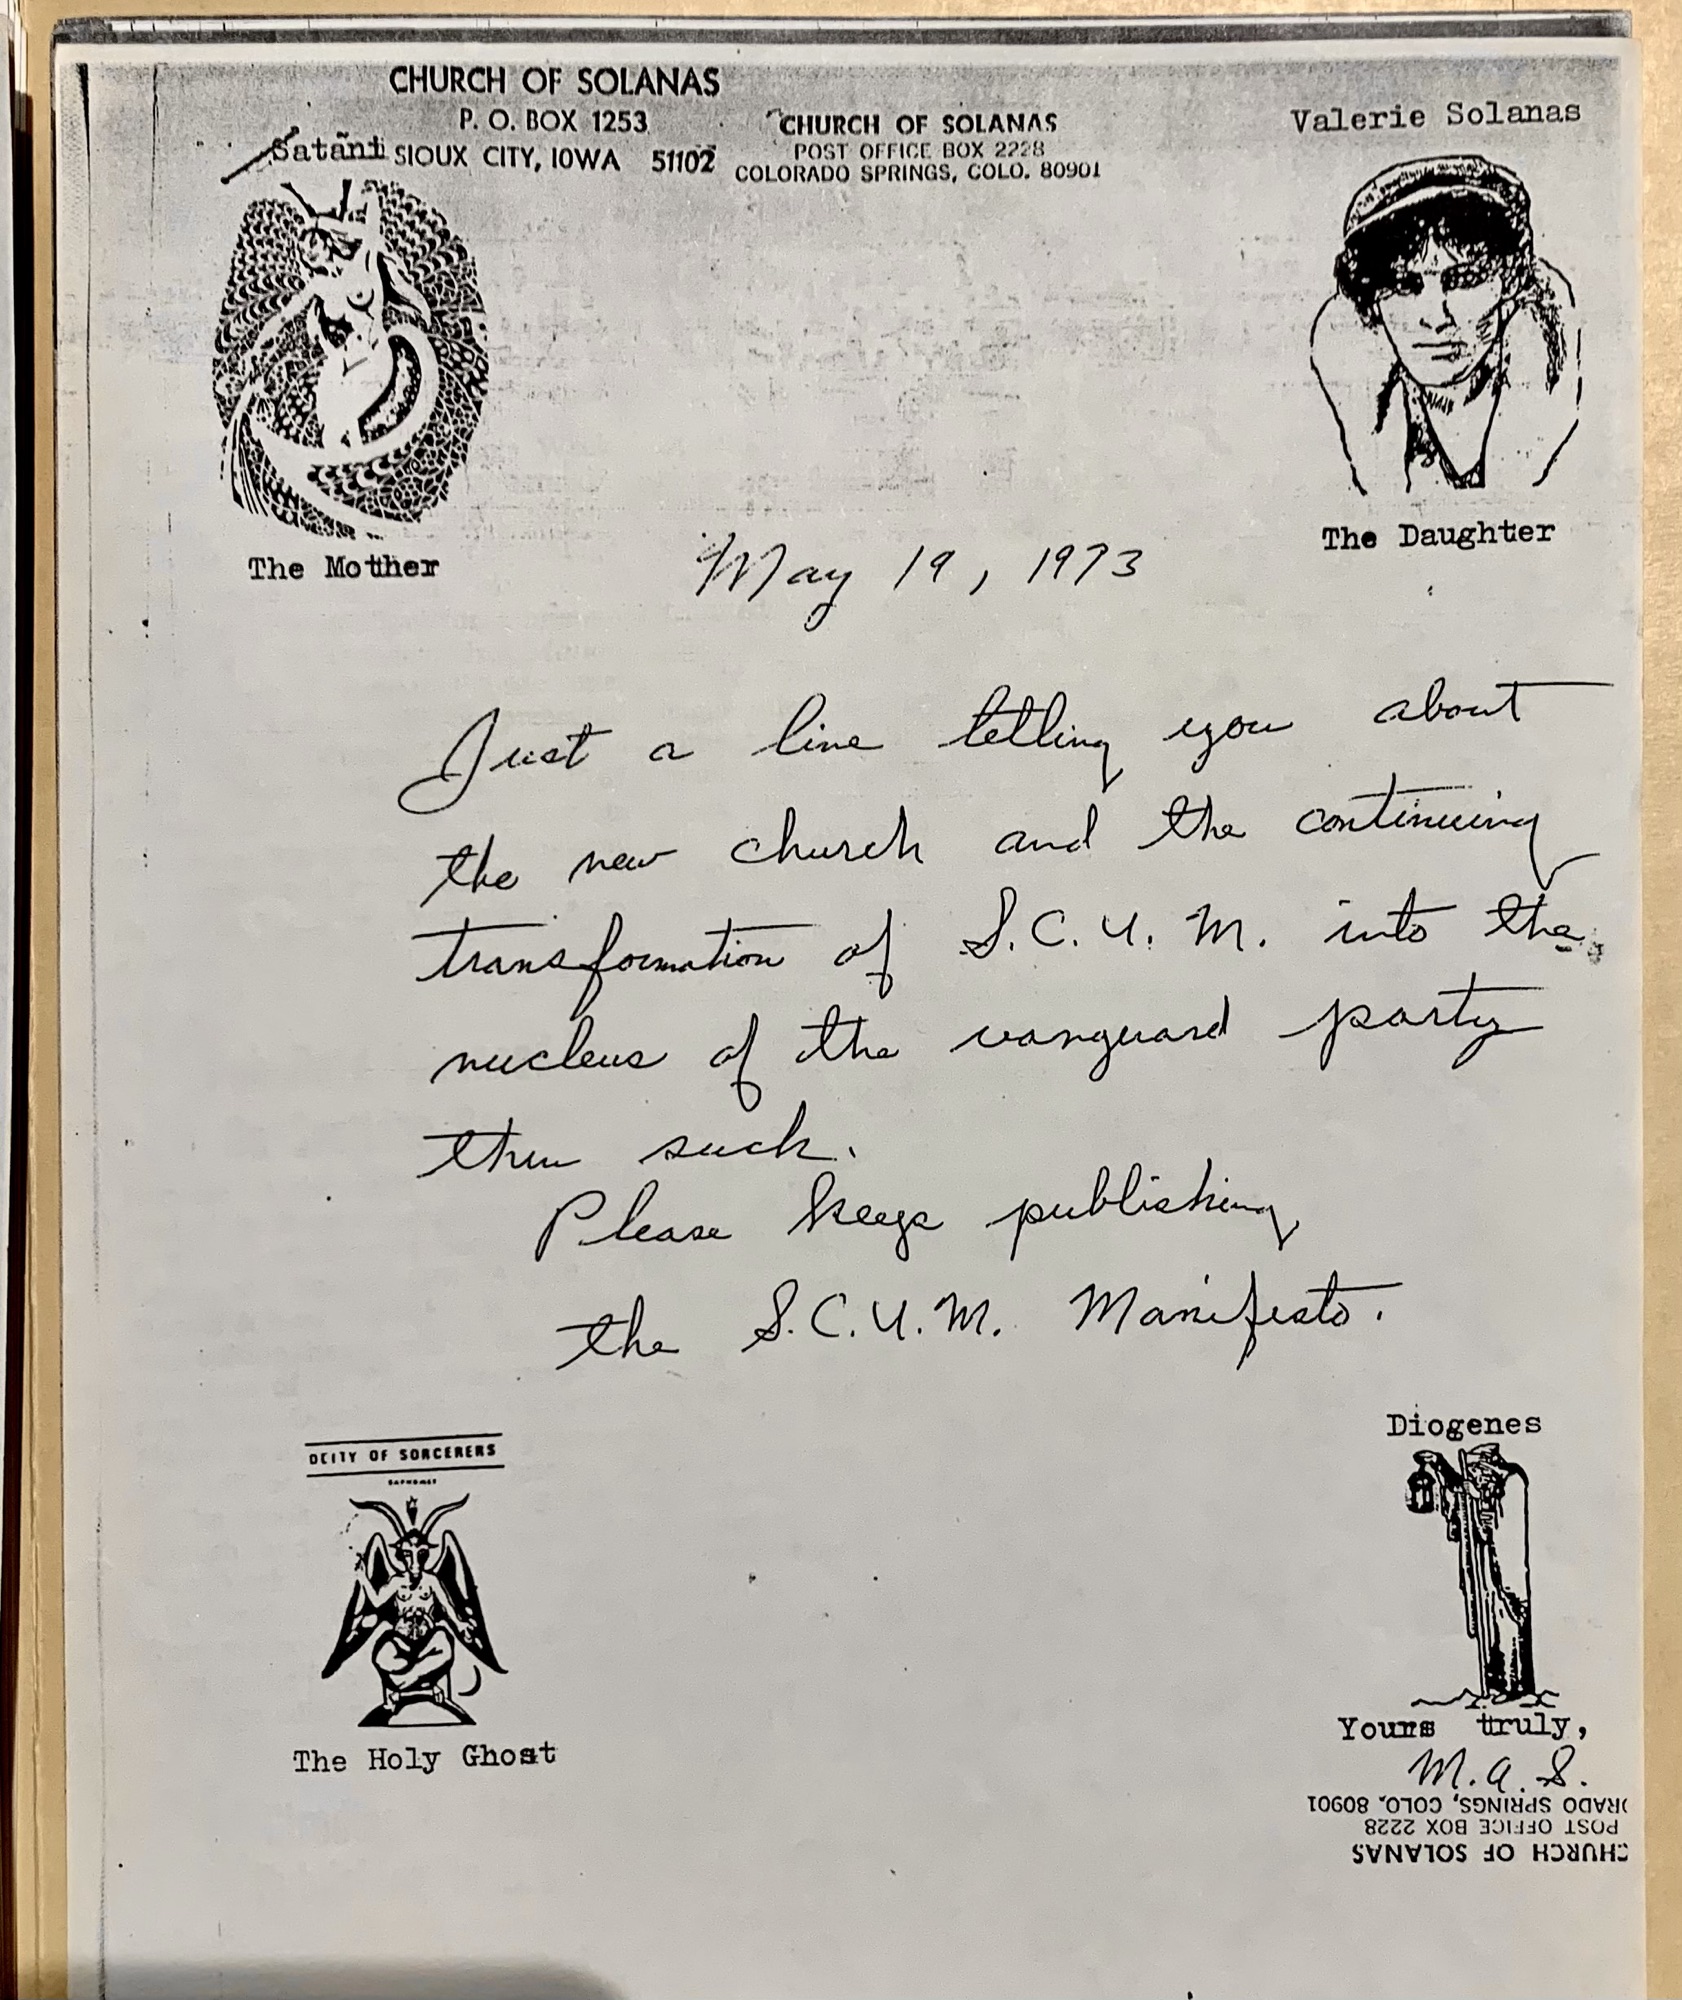 CHURCH OF SOLANAS
P. O. BOX 1253
SIOUX CITY, IOWA 51102
CHURCH OF SOLANAS
POST OFFICE BOX 2228
COLORADO SPRINGS, COLO. 80901
Valerie Solanas
Satani
The Mother
The Daughter
May 19, 1973
Just a line telling you about
the new church and the continuing
transformation of S.C.U.M. into the
nucleus of the vanguard party
thru suck.
Please keep publishing
the S.C.U.M. Manifesto.
DEITY OF SORCERERS
BAPHOMET
The Holy Ghost
Diogenes
Yours truly,
M.A.S.
CHURCH OF SOLANAS
POST OFFICE BOX 2228
RADO SPRINGS, COLO. 80901